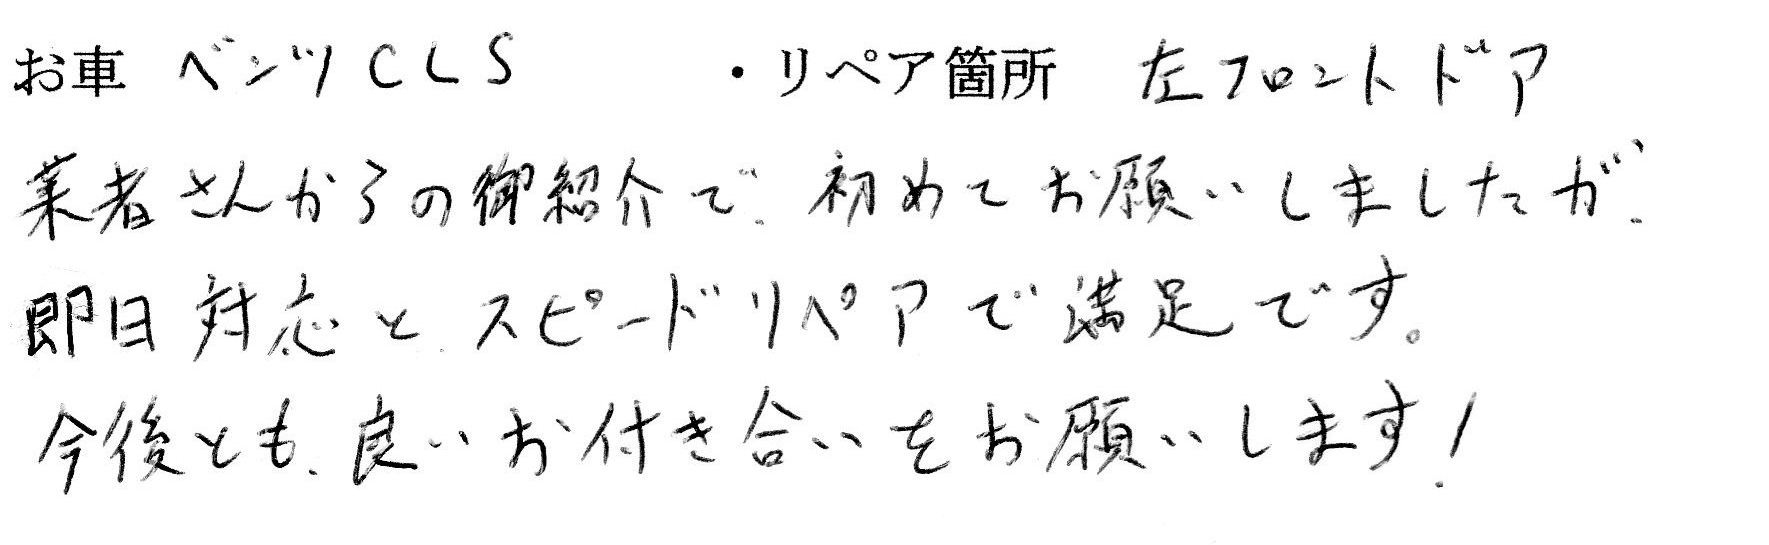 お車 ベンツCLS ・リペア箇所 左フロントドア
業者さんからの御紹介で、初めてお願いしましたが、
即日対応とスピードリペアで満足です。
今後とも、良いお付き合いをお願いします!